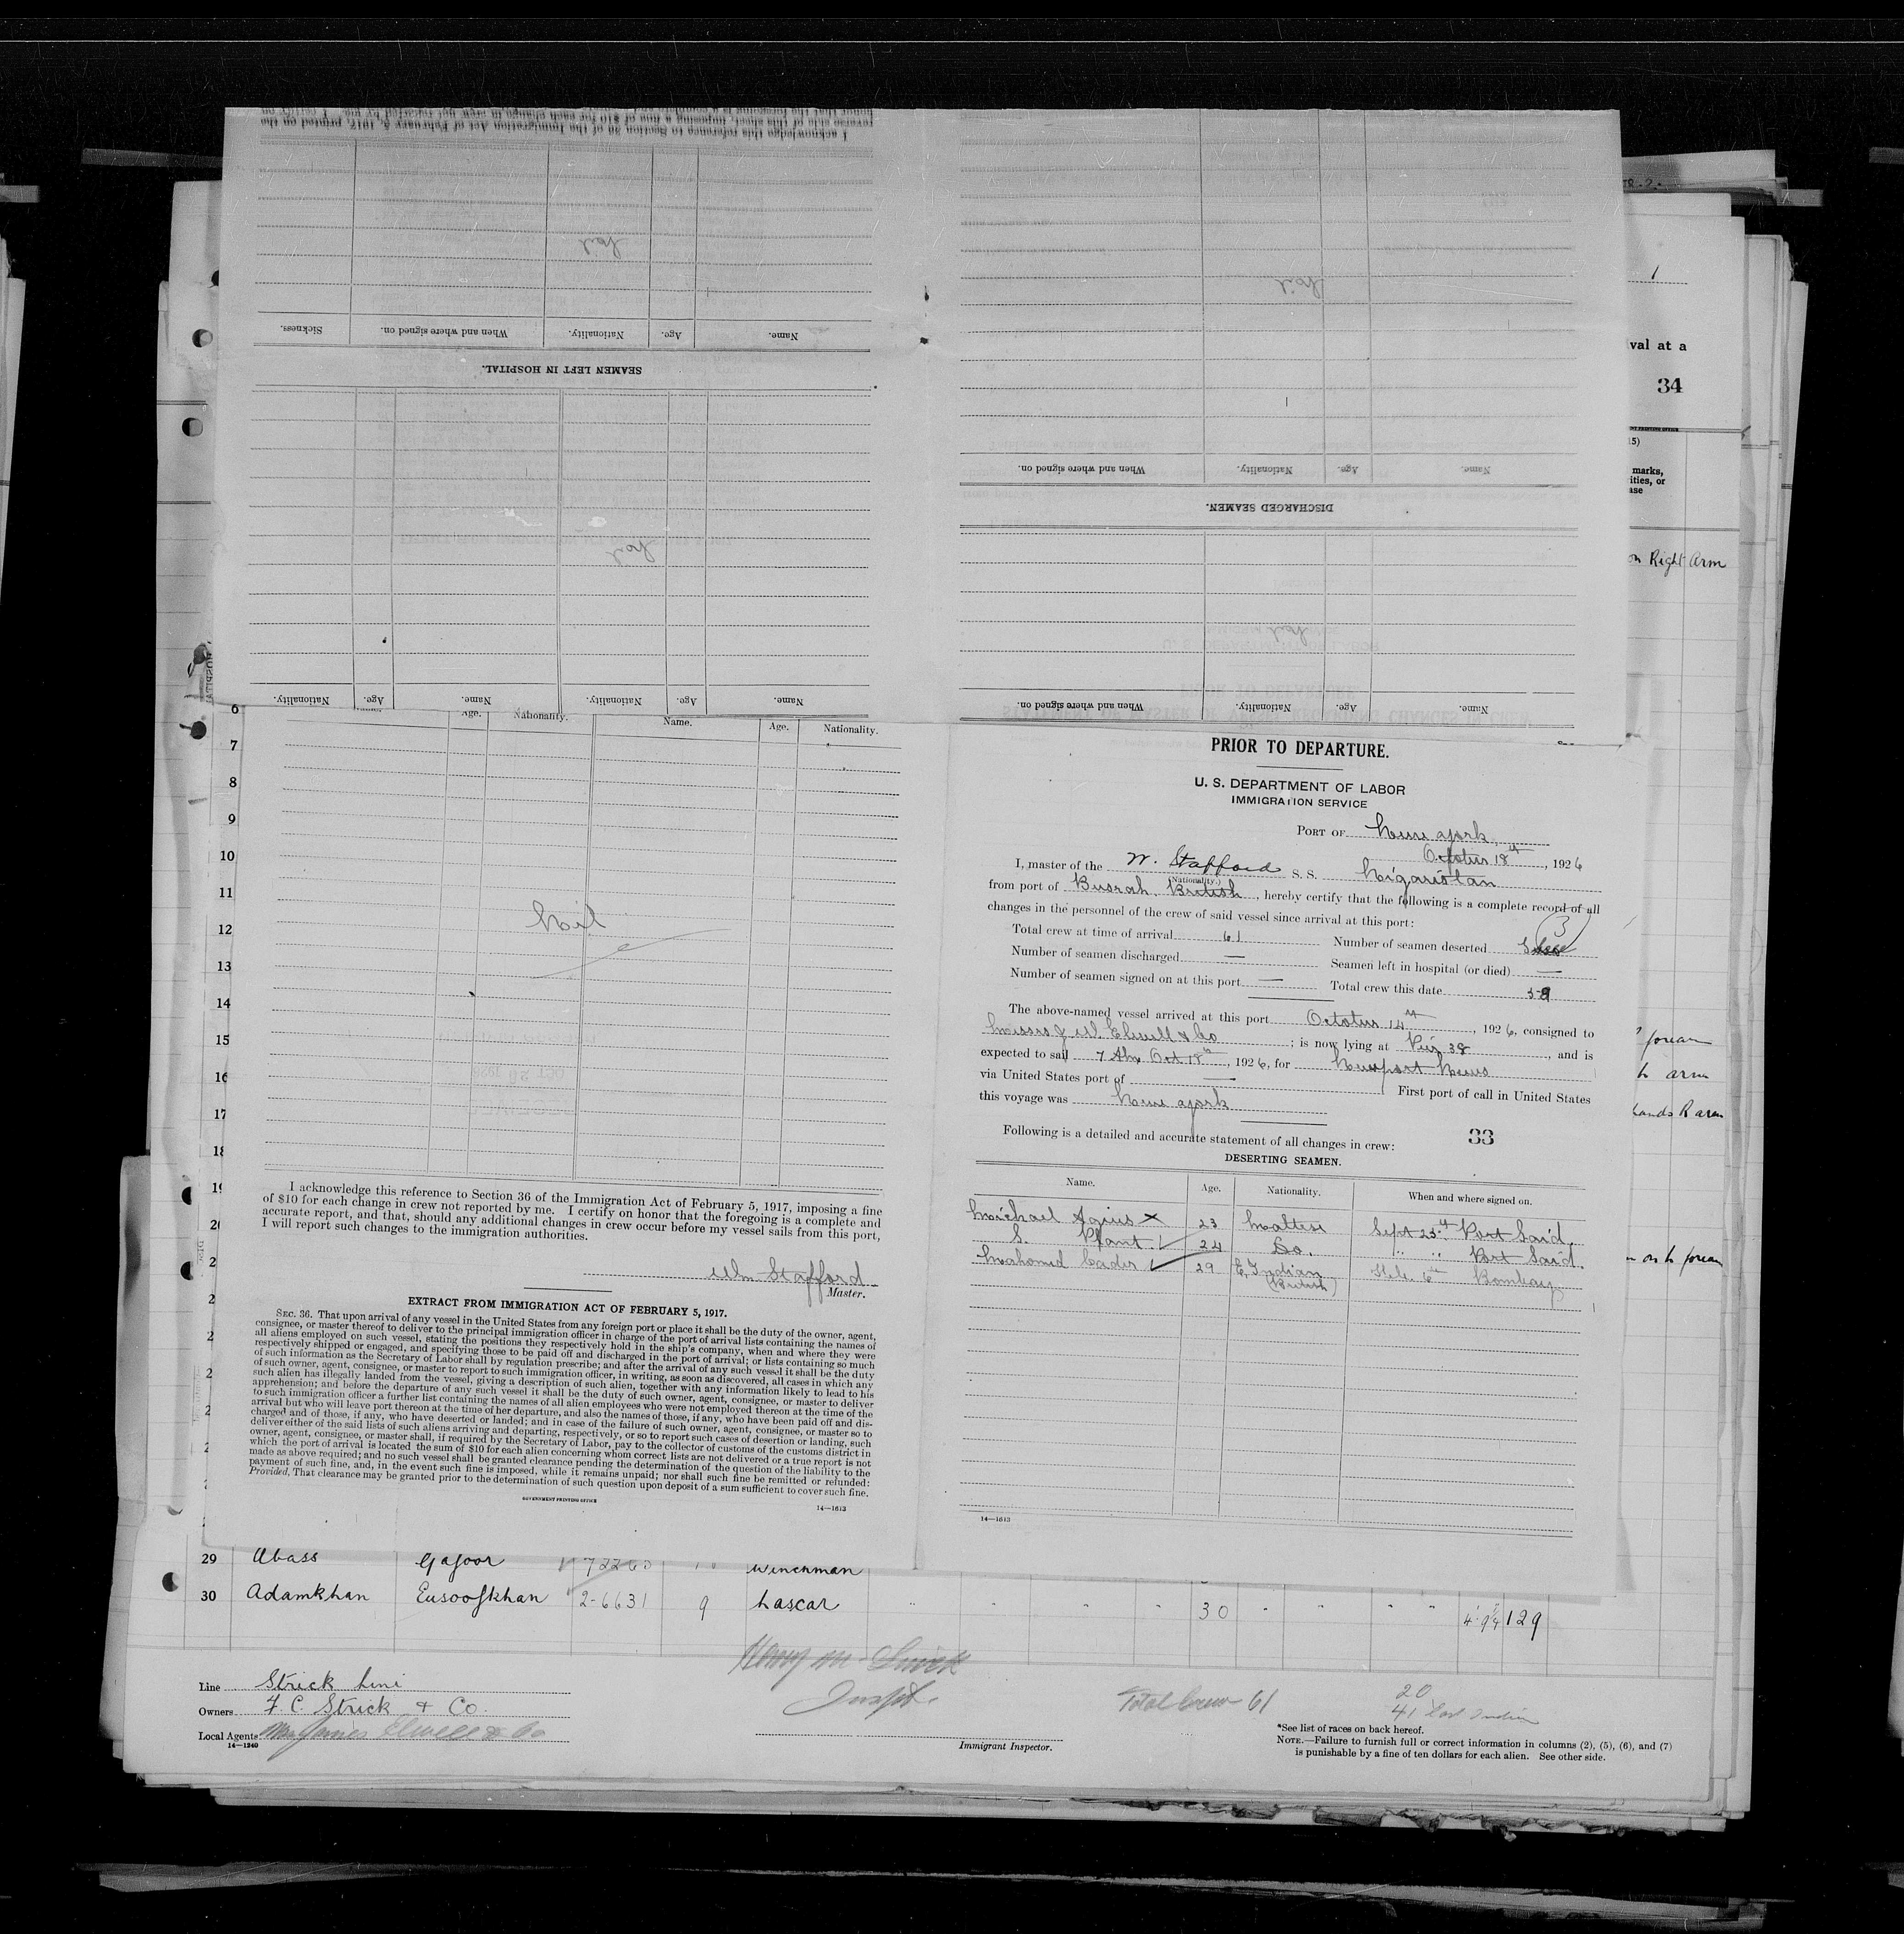 I acknowledge this reference to Section 36 of the Immigration Act of February 5, 1917, printed on the
Name. Age. Nationality. When and where signed on. Sickness.
SEAMEN LEFT IN HOSPITAL.
Name. Age. Nationality. Name. Age. Nationality.
Name. Age. Nationality. When and where signed on.
DISCHARGED SEAMEN.
Name. Age. Nationality. When and where signed on.
1
val at a
34
15)
marks,
ities, or
ase
on Right Arm
6
7
8
9
10
11
12
13
14
15
16
17
Age. Nationality. Name. Age. Nationality.
Nil
I acknowledge this reference to Section 36 of the Immigration Act of February 5, 1917, imposing a fine
of $10 for each change in crew not reported by me. I certify on honor that the foregoing is a complete and
accurate report, and that, should any additional changes in crew occur before my vessel sails from this port,
I will report such changes to the immigration authorities.
Wm Stafford
Master.
EXTRACT FROM IMMIGRATION ACT OF FEBRUARY 5, 1917.
SEC. 36. That upon arrival of any vessel in the United States from any foreign port or place it shall be the duty of the owner, agent,
consignee, or master thereof to deliver to the principal immigration officer in charge of the port of arrival lists containing the names of
all aliens employed on such vessel, stating the positions they respectively hold in the ship's company, when and where they were
respectively shipped or engaged, and specifying those to be paid off and discharged in the port of arrival; or lists containing so much
of such information as the Secretary of Labor shall by regulation prescribe; and after the arrival of any such vessel it shall be the duty
of such owner, agent, consignee, or master to report to such immigration officer, in writing, as soon as discovered, all cases in which any
such alien has illegally landed from the vessel, giving a description of such alien, together with any information likely to lead to his
apprehension; and before the departure of any such vessel it shall be the duty of such owner, agent, consignee, or master to deliver
to such immigration officer a further list containing the names of all alien employees who were not employed thereon at the time of the
arrival but who will leave port thereon at the time of her departure, and also the names of those, if any, who have been paid off and dis-
charged and of those, if any, who have deserted or landed; and in case of the failure of such owner, agent, consignee, or master so to
deliver either of the said lists of such aliens arriving and departing, respectively, or so to report such cases of desertion or landing, such
owner, agent, consignee, or master shall, if required by the Secretary of Labor, pay to the collector of customs of the customs district in
which the port of arrival is located the sum of $10 for each alien concerning whom correct lists are not delivered or a true report is not
made as above required; and no such vessel shall be granted clearance pending the determination of the question of the liability to the
payment of such fine, and, in the event such fine is imposed, while it remains unpaid; nor shall such fine be remitted or refunded:
Provided, That clearance may be granted prior to the determination of such question upon deposit of a sum sufficient to cover such fine.
GOVERNMENT PRINTING OFFICE
14—1613
PRIOR TO DEPARTURE.
U. S. DEPARTMENT OF LABOR
IMMIGRATION SERVICE
PORT OF New York,
October 18th, 1926
I, master of the W. Stafford S. S. Nigaristan
(Nationality.)
from port of Busrah British, hereby certify that the following is a complete record of all
changes in the personnel of the crew of said vessel since arrival at this port:
(3)
Total crew at time of arrival 61 Number of seamen deserted
Number of seamen discharged — Seamen left in hospital (or died) —
Number of seamen signed on at this port — Total crew this date 58
The above-named vessel arrived at this port October 14th, 1926, consigned to
Messrs J. W. Elwell & Co; is now lying at Pier 38, and is
expected to sail 7 Am Oct 18th, 1926, for Newport News
via United States port of — First port of call in United States
this voyage was New York
33
Following is a detailed and accurate statement of all changes in crew:
DESERTING SEAMEN.
Name. Age. Nationality. When and where signed on.
Michael Agius x 23 Maltese Sept 25th Port Said.
S. Plant ✓ 24 Do. " " Port Said.
Mahomed Cader ✓ 29 E. Indian (British) Feb. 6th Bombay
14—1613
forearm
arm
hands R arm
on L forearm
29 Abass Gafoor 72260 10 Winchman
30 Adamkhan Eusoofkhan 2-6631 9 Lascar " " " " 30 " " " 129
Line Strick Line
Owners F. C. Strick & Co.
Local Agents James Elwell & Co
14—1240
Inspt.
Immigrant Inspector.
Total Crew 61
20
41 East Indian
*See list of races on back hereof.
NOTE.—Failure to furnish full or correct information in columns (2), (5), (6), and (7)
is punishable by a fine of ten dollars for each alien. See other side.